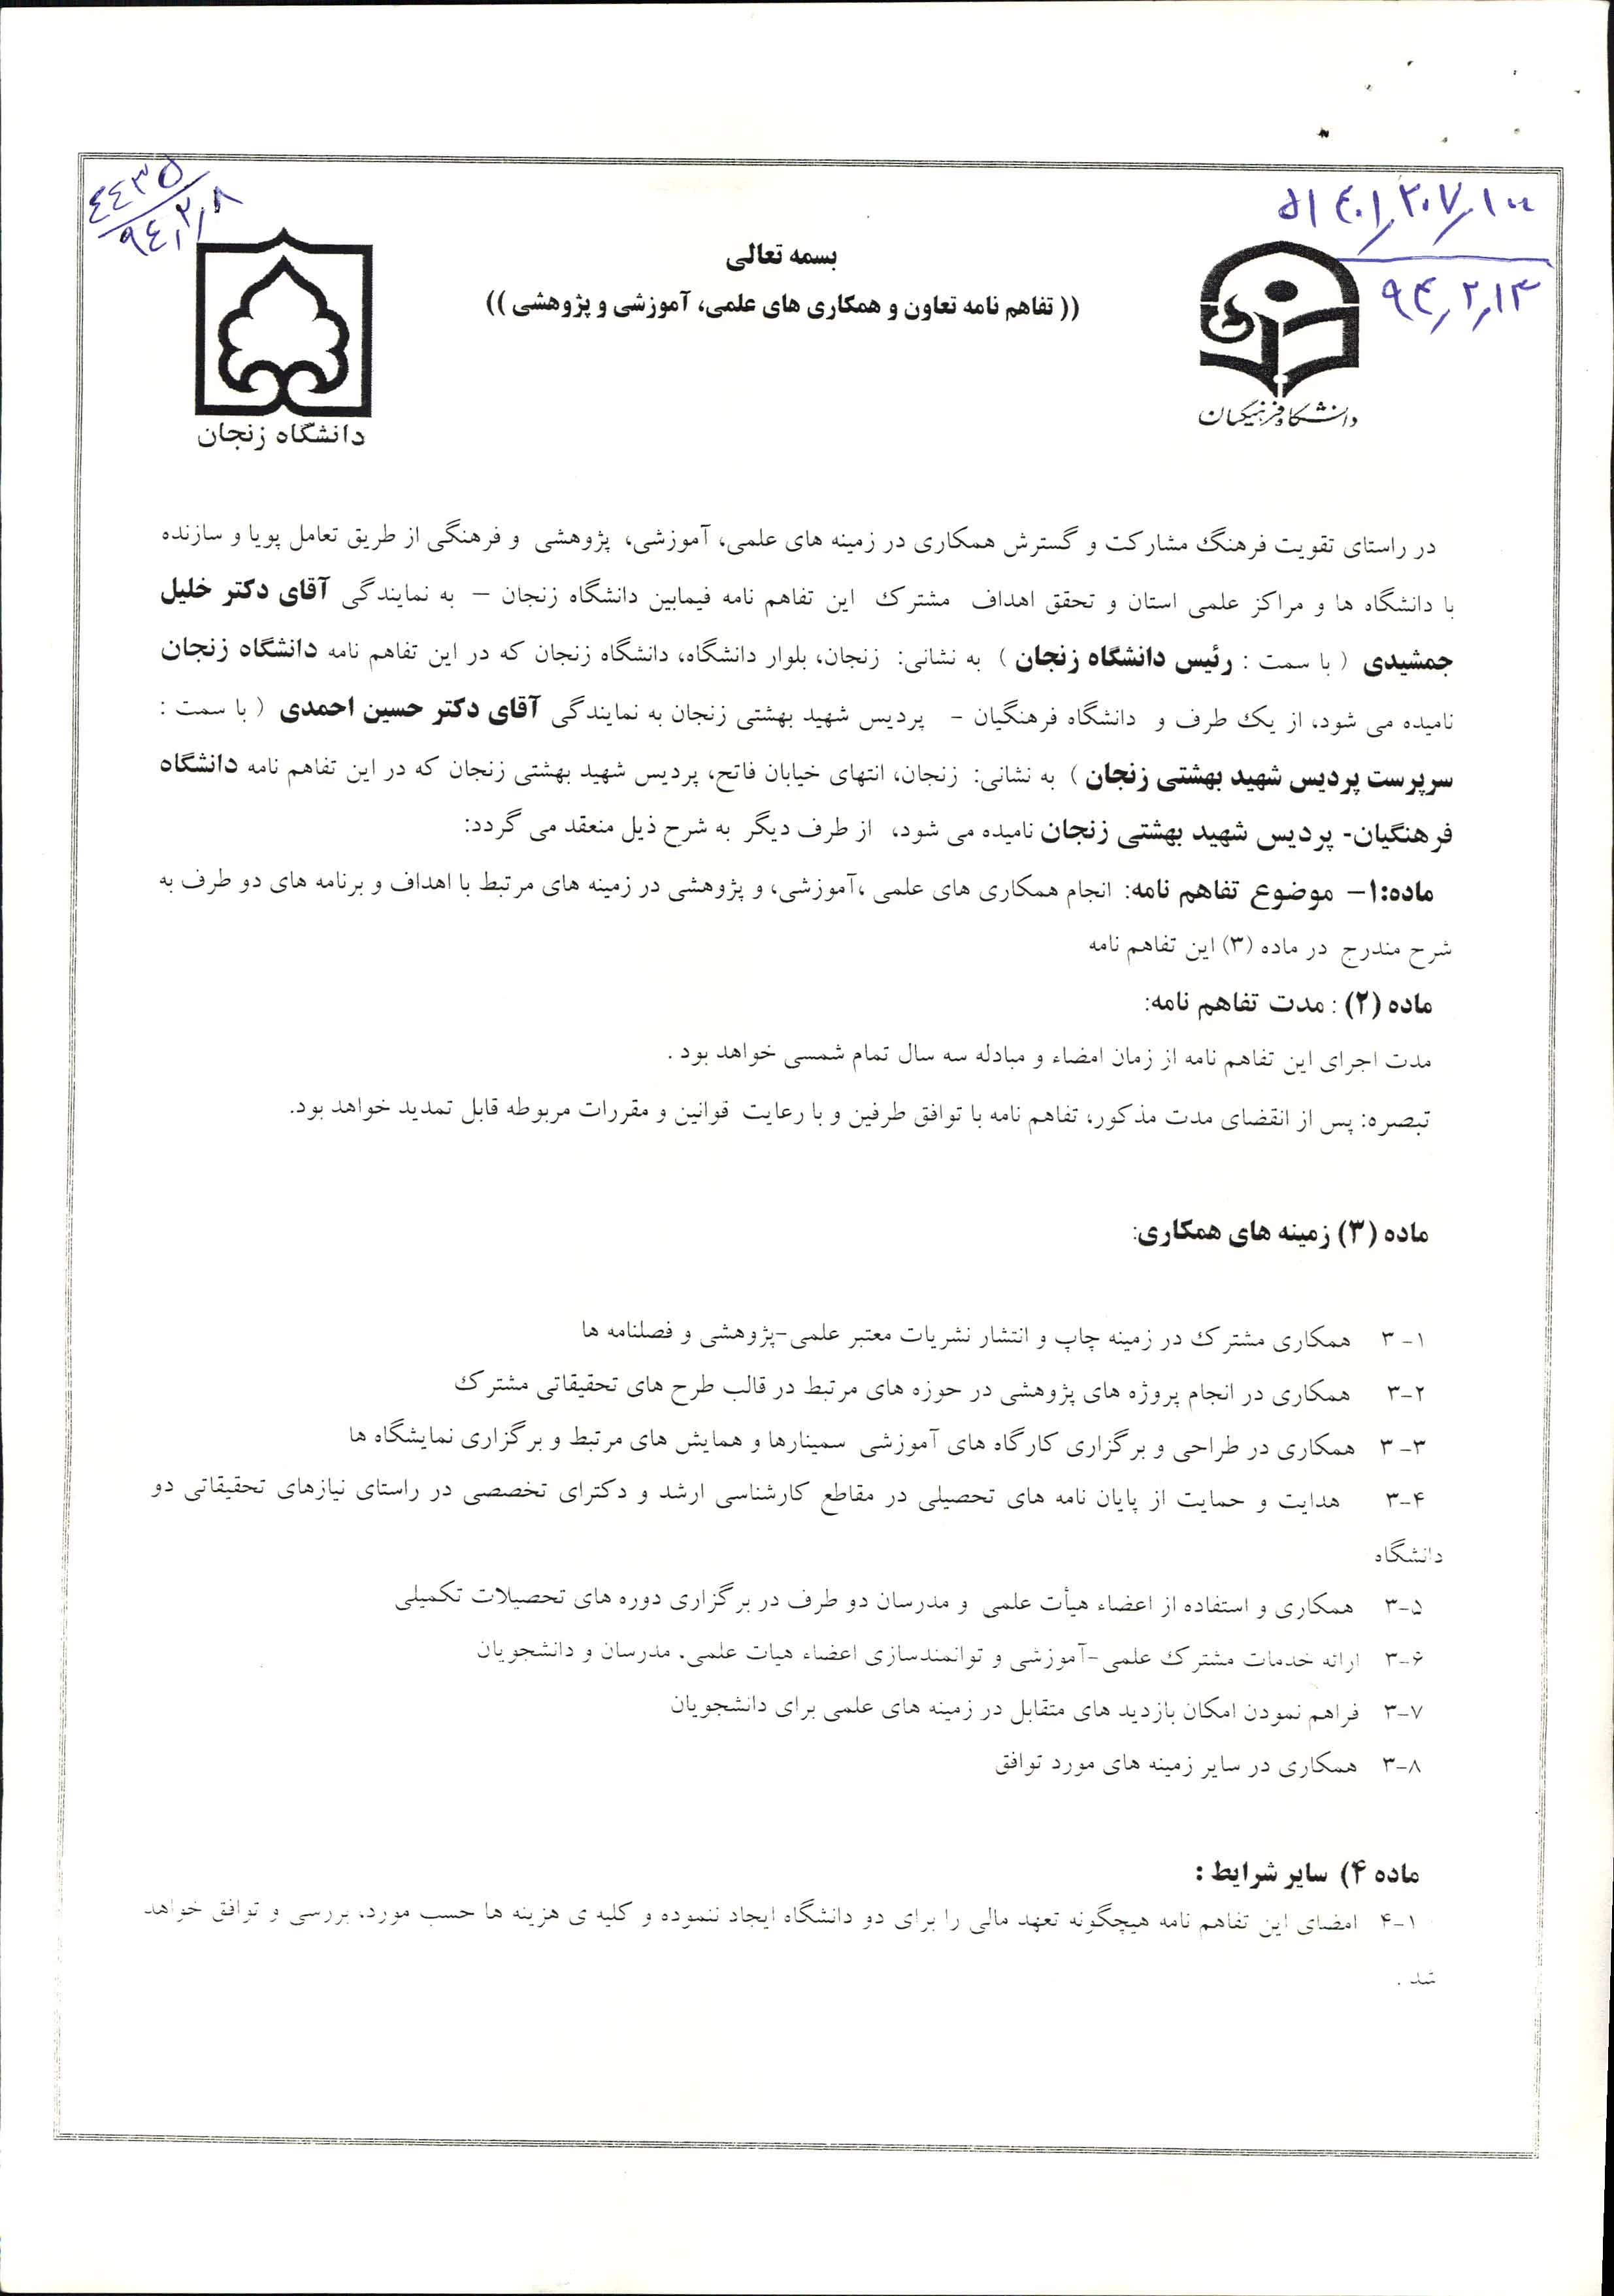 ۵۱۴۰۱/۲۰۷/۱۰۰
۹۴/۲/۱۳
۴۴۳۵
۹۴/۲/۸
بسمه تعالی
(( تفاهم نامه تعاون و همکاری های علمی، آموزشی و پژوهشی ))
دانشگاه فرهنگیان
دانشگاه زنجان
در راستای تقویت فرهنگ مشارکت و گسترش همکاری در زمینه های علمی، آموزشی، پژوهشی و فرهنگی از طریق تعامل پویا و سازنده
با دانشگاه ها و مراکز علمی استان و تحقق اهداف مشترک این تفاهم نامه فیمابین دانشگاه زنجان – به نمایندگی آقای دکتر خلیل
جمشیدی ( با سمت : رئیس دانشگاه زنجان ) به نشانی: زنجان، بلوار دانشگاه، دانشگاه زنجان که در این تفاهم نامه دانشگاه زنجان
نامیده می شود، از یک طرف و دانشگاه فرهنگیان - پردیس شهید بهشتی زنجان به نمایندگی آقای دکتر حسین احمدی ( با سمت :
سرپرست پردیس شهید بهشتی زنجان ) به نشانی: زنجان، انتهای خیابان فاتح، پردیس شهید بهشتی زنجان که در این تفاهم نامه دانشگاه
فرهنگیان- پردیس شهید بهشتی زنجان نامیده می شود، از طرف دیگر به شرح ذیل منعقد می گردد:
ماده:۱– موضوع تفاهم نامه: انجام همکاری های علمی ،آموزشی، و پژوهشی در زمینه های مرتبط با اهداف و برنامه های دو طرف به
شرح مندرج در ماده (۳) این تفاهم نامه
ماده (۲) : مدت تفاهم نامه:
مدت اجرای این تفاهم نامه از زمان امضاء و مبادله سه سال تمام شمسی خواهد بود .
تبصره: پس از انقضای مدت مذکور، تفاهم نامه با توافق طرفین و با رعایت قوانین و مقررات مربوطه قابل تمدید خواهد بود.
ماده (۳) زمینه های همکاری:
۳-۱ همکاری مشترک در زمینه چاپ و انتشار نشریات معتبر علمی-پژوهشی و فصلنامه ها
۳-۲ همکاری در انجام پروژه های پژوهشی در حوزه های مرتبط در قالب طرح های تحقیقاتی مشترک
۳-۳ همکاری در طراحی و برگزاری کارگاه های آموزشی سمینارها و همایش های مرتبط و برگزاری نمایشگاه ها
۳-۴ هدایت و حمایت از پایان نامه های تحصیلی در مقاطع کارشناسی ارشد و دکترای تخصصی در راستای نیازهای تحقیقاتی دو
دانشگاه
۳-۵ همکاری و استفاده از اعضاء هیأت علمی و مدرسان دو طرف در برگزاری دوره های تحصیلات تکمیلی
۳-۶ ارائه خدمات مشترک علمی-آموزشی و توانمندسازی اعضاء هیات علمی، مدرسان و دانشجویان
۳-۷ فراهم نمودن امکان بازدید های متقابل در زمینه های علمی برای دانشجویان
۳-۸ همکاری در سایر زمینه های مورد توافق
ماده ۴) سایر شرایط :
۴-۱ امضای این تفاهم نامه هیچگونه تعهد مالی را برای دو دانشگاه ایجاد ننموده و کلیه ی هزینه ها حسب مورد، بررسی و توافق خواهد
شد .